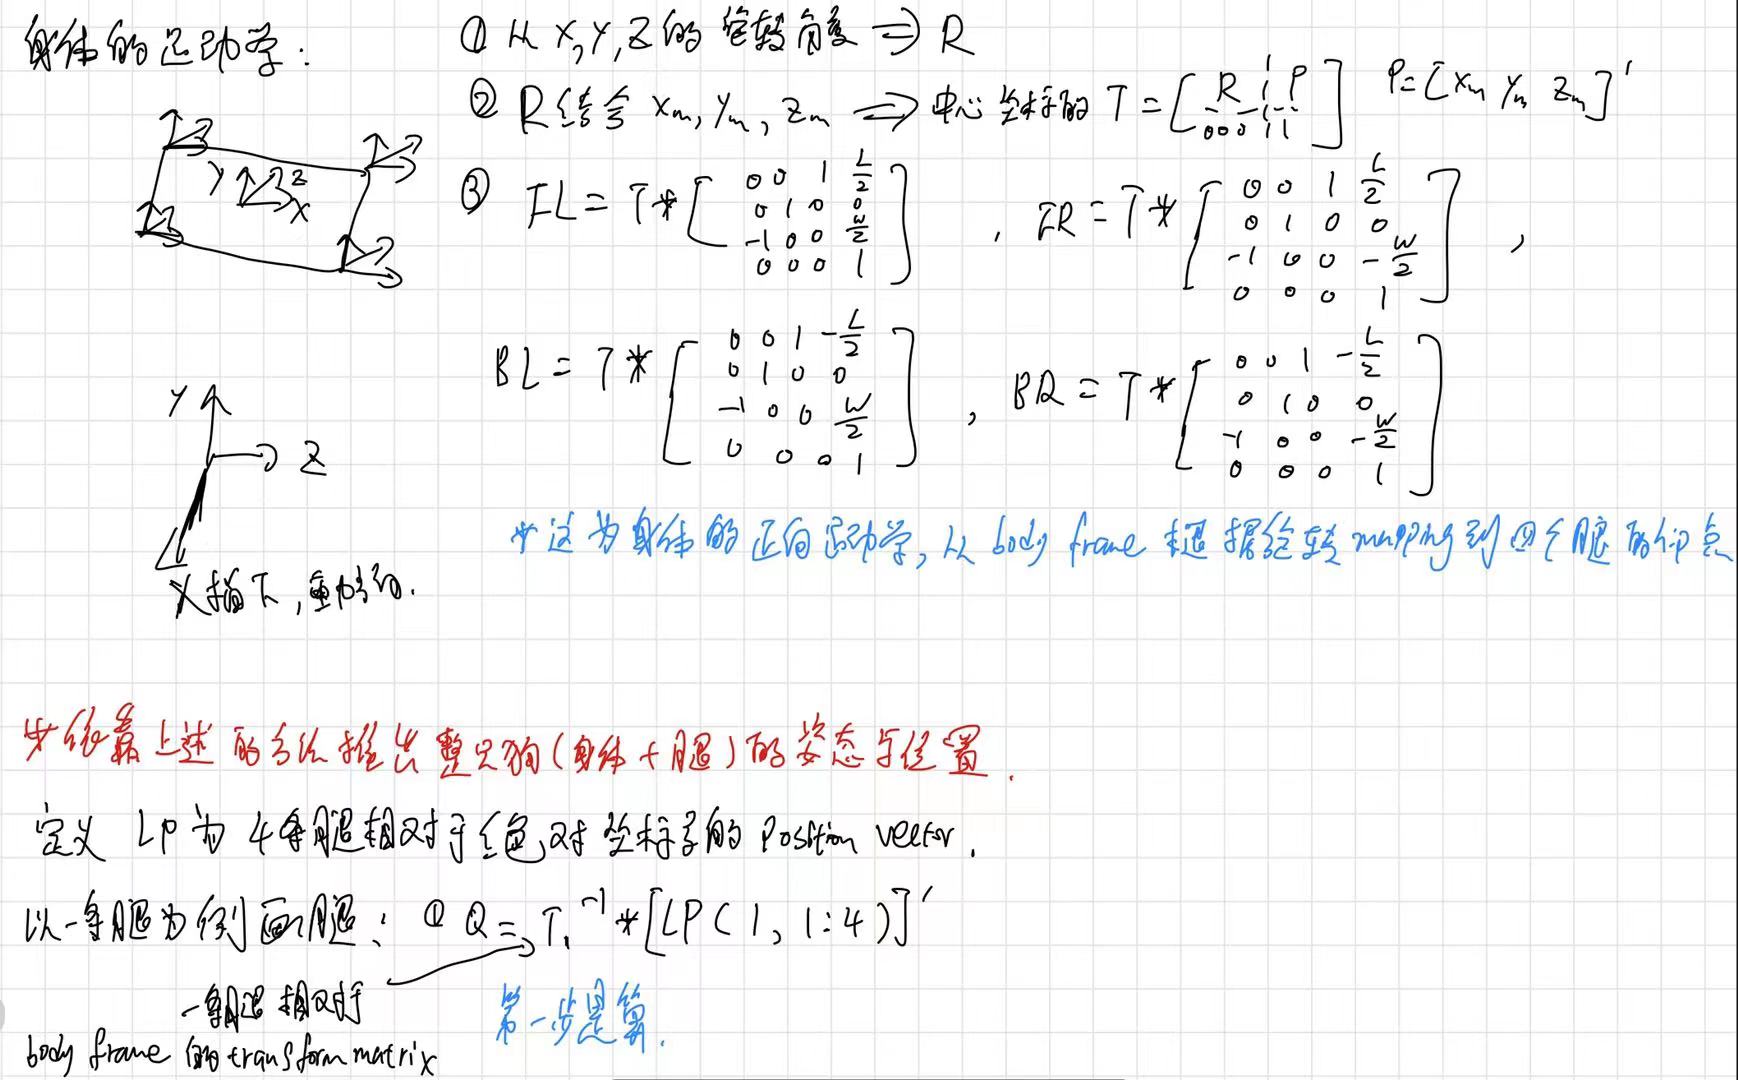 身体的运动学：
① 从 X,Y,Z的旋转角度 => R
② R结合 xm, ym, zm => 中心坐标的 T = [R P; 000 1] P = [xm ym zm]'
③ FL = T * [0 0 1 L/2; 0 1 0 0; -1 0 0 W/2; 0 0 0 1] , FR = T * [0 0 1 L/2; 0 1 0 0; -1 0 0 -W/2; 0 0 0 1] ,
Y Z X
BL = T * [0 0 1 -L/2; 0 1 0 0; -1 0 0 W/2; 0 0 0 1] , BR = T * [0 0 1 -L/2; 0 1 0 0; -1 0 0 -W/2; 0 0 0 1]
Y
Z
X指下，重力方向.
* 这为身体的正向运动学, 从 body frame 根据旋转 mapping 到四个腿的 点
* 依靠上述的方法推出整只狗(身体+腿)的姿态与位置.
定义 LP 为 4条腿相对于绝对坐标系的 Position vector.
以一条腿为例 腿: ① Q = T₁⁻¹ * [LP(1, 1:4)]'
一条腿相对于
body frame 的 transform matrix
第一步是算.